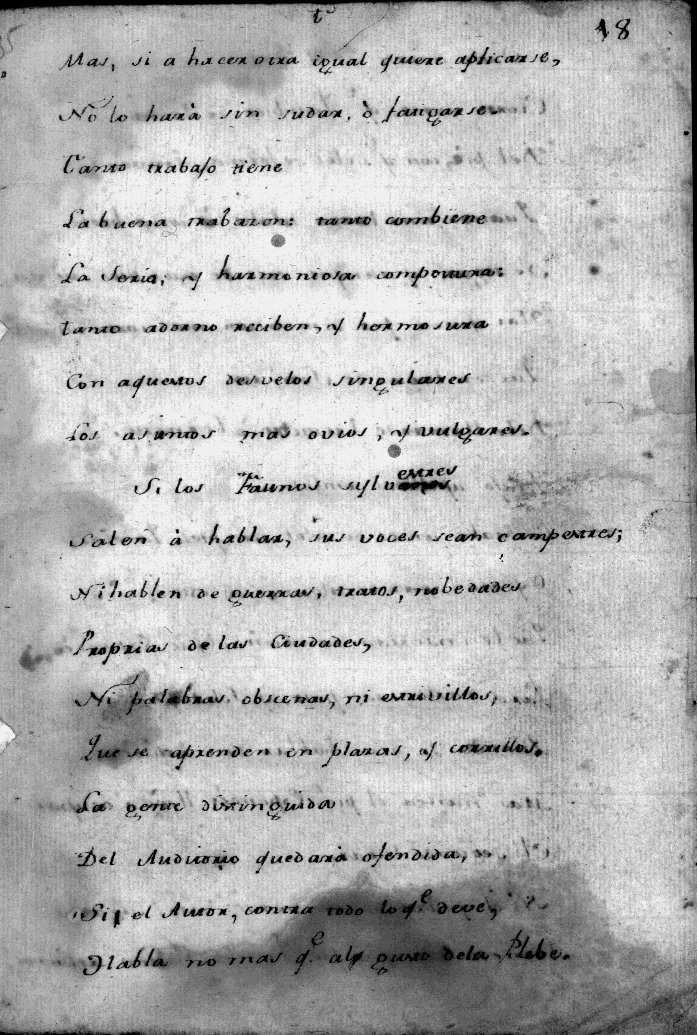 t
18
Mas, si a hacer otra igual quiere aplicarse,
No lo harà sin sudar, ò fatigarse.
Tanto trabajo tiene
La buena trabazon: tanto combiene
La Seria, y harmoniosa compostura:
tanto adorno reciben, y hermosura
Con aquestos desvelos singulares
Los asuntos mas ovios, y vulgares.
Si los Faunos sylvestres
Salen à hablar, sus voces sean campestres;
Ni hablen de guerras, tratos, nobedades
Proprias de las Ciudades,
Ni palabras obscenas, ni estrivillos,
Que se aprenden en plazas, y corrillos.
La gente distinguida
Del Auditorio quedarà ofendida,
Si el Autor, contra todo lo q.e deve,
Habla no mas q.e al gusto dela Plebe.